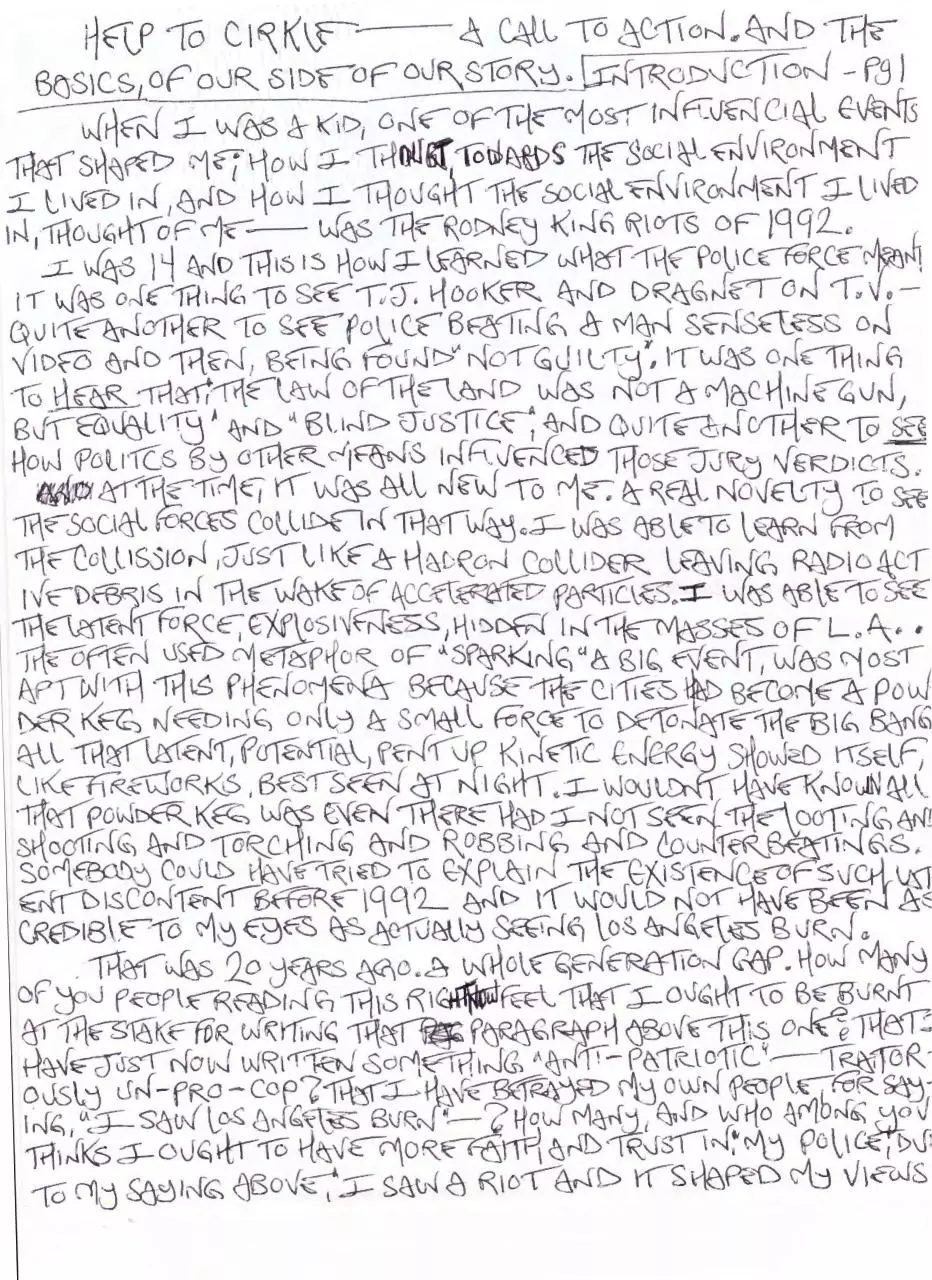 HELP TO CIRKLE —— A CALL TO ACTION. AND THE
BASICS, OF OUR SIDE OF OUR STORY. INTRODUCTION - Pg 1
WHEN I WAS A KID, ONE OF THE MOST INFLUENCIAL EVENTS
THAT SHAPED ME; HOW I THOUGHT, TOWARDS THE SOCIAL ENVIRONMENT
I LIVED IN, AND HOW I THOUGHT THE SOCIAL ENVIRONMENT I LIVED
IN, THOUGHT OF ME —— WAS THE RODNEY KING RIOTS OF 1992.
I WAS 14 AND THIS IS HOW I LEARNED WHAT THE POLICE FORCE MEANT
IT WAS ONE THING TO SEE T.J. HOOKER AND DRAGNET ON T.V. —
QUITE ANOTHER TO SEE POLICE BEATING A MAN SENSELESS ON
VIDEO AND THEN, BEING FOUND "NOT GUILTY". IT WAS ONE THING
TO HEAR THAT, "THE LAW OF THE LAND WAS NOT A MACHINE GUN,
BUT EQUALITY" AND "BLIND JUSTICE", AND QUITE ANOTHER TO SEE
HOW POLITCS BY OTHER MEANS INFLUENCED THOSE JURY VERDICTS.
AT THE TIME, IT WAS ALL NEW TO ME. A REAL NOVELTY TO SEE
THE SOCIAL FORCES COLLIDE IN THAT WAY. I WAS ABLE TO LEARN FROM
THE COLLISSION, JUST LIKE A HADRON COLLIDER LEAVING RADIOACT
IVE DEBRIS IN THE WAKE OF ACCELERATED PARTICLES. I WAS ABLE TO SEE
THE LATENT FORCE, EXPLOSIVENESS, HIDDEN IN THE MASSES OF L.A..
THE OFTEN USED METAPHOR OF "SPARKING" A BIG EVENT, WAS MOST
APT WITH THIS PHENOMENA BECAUSE THE CITIES HAD BECOME A POW
DER KEG, NEEDING ONLY A SMALL FORCE TO DETONATE THE BIG BANG
ALL THAT LATENT, POTENTIAL, PENT UP KINETIC ENERGY SHOWED ITSELF,
LIKE FIREWORKS, BEST SEEN AT NIGHT. I WOULDNT HAVE KNOWN ALL
THAT POWDER KEG WAS EVEN THERE HAD I NOT SEEN THE LOOTING AN
SHOOTING AND TORCHING AND ROBBING AND COUNTER BEATINGS.
SOMEBODY COULD HAVE TRIED TO EXPLAIN THE EXISTENCE OF SUCH
ENT DISCONTENT BEFORE 1992 AND IT WOULD NOT HAVE BEEN AS
CREDIBLE TO MY EYES AS ACTUALLY SEEING LOS ANGELES BURN.
THAT WAS 20 YEARS AGO. A WHOLE GENERATION GAP. HOW MANY
OF YOU PEOPLE READING THIS RIGHT NOW FEEL THAT I OUGHT TO BE BURNT
AT THE STAKE FOR WRITING THAT PARAGRAPH ABOVE THIS ONE? THAT I
HAVE JUST NOW WRITTEN SOMETHING "ANTI-PATRIOTIC" — TRAITOR-
OUSLY UN-PRO-COP? THAT I HAVE BETRAYED MY OWN PEOPLE FOR SAY-
ING, "I SAW LOS ANGELES BURN" —? HOW MANY, AND WHO AMONG YOU
THINKS I OUGHT TO HAVE MORE FAITH, AND TRUST IN, "MY POLICE", DUE
TO MY SAYING ABOVE, "I SAW A RIOT AND IT SHAPED MY VIEWS